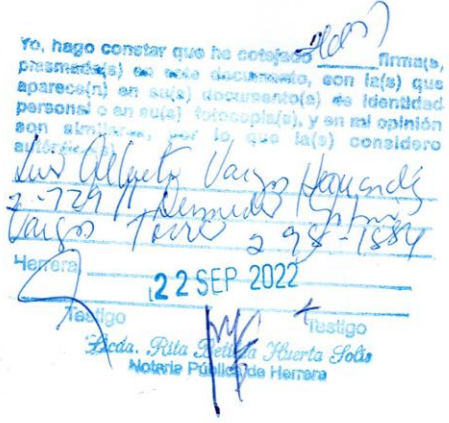 Yo, hago constar que he cotejado dos firma(s,
plasmada(s) en este documento, con la(s) que
aparece(n) en su(s) documento(s) de identidad
personal o en su(s) fotocopia(s), y en mi opinión
son similares, por lo que la(s) considero
Luis Alberto Vargas Hernandez
Vargas Torres 2 98-1884
Herrera,
22 SEP 2022
Testigo Testigo
Licda. Rita Betilda Huerta Solís
Notaria Pública de Herrera